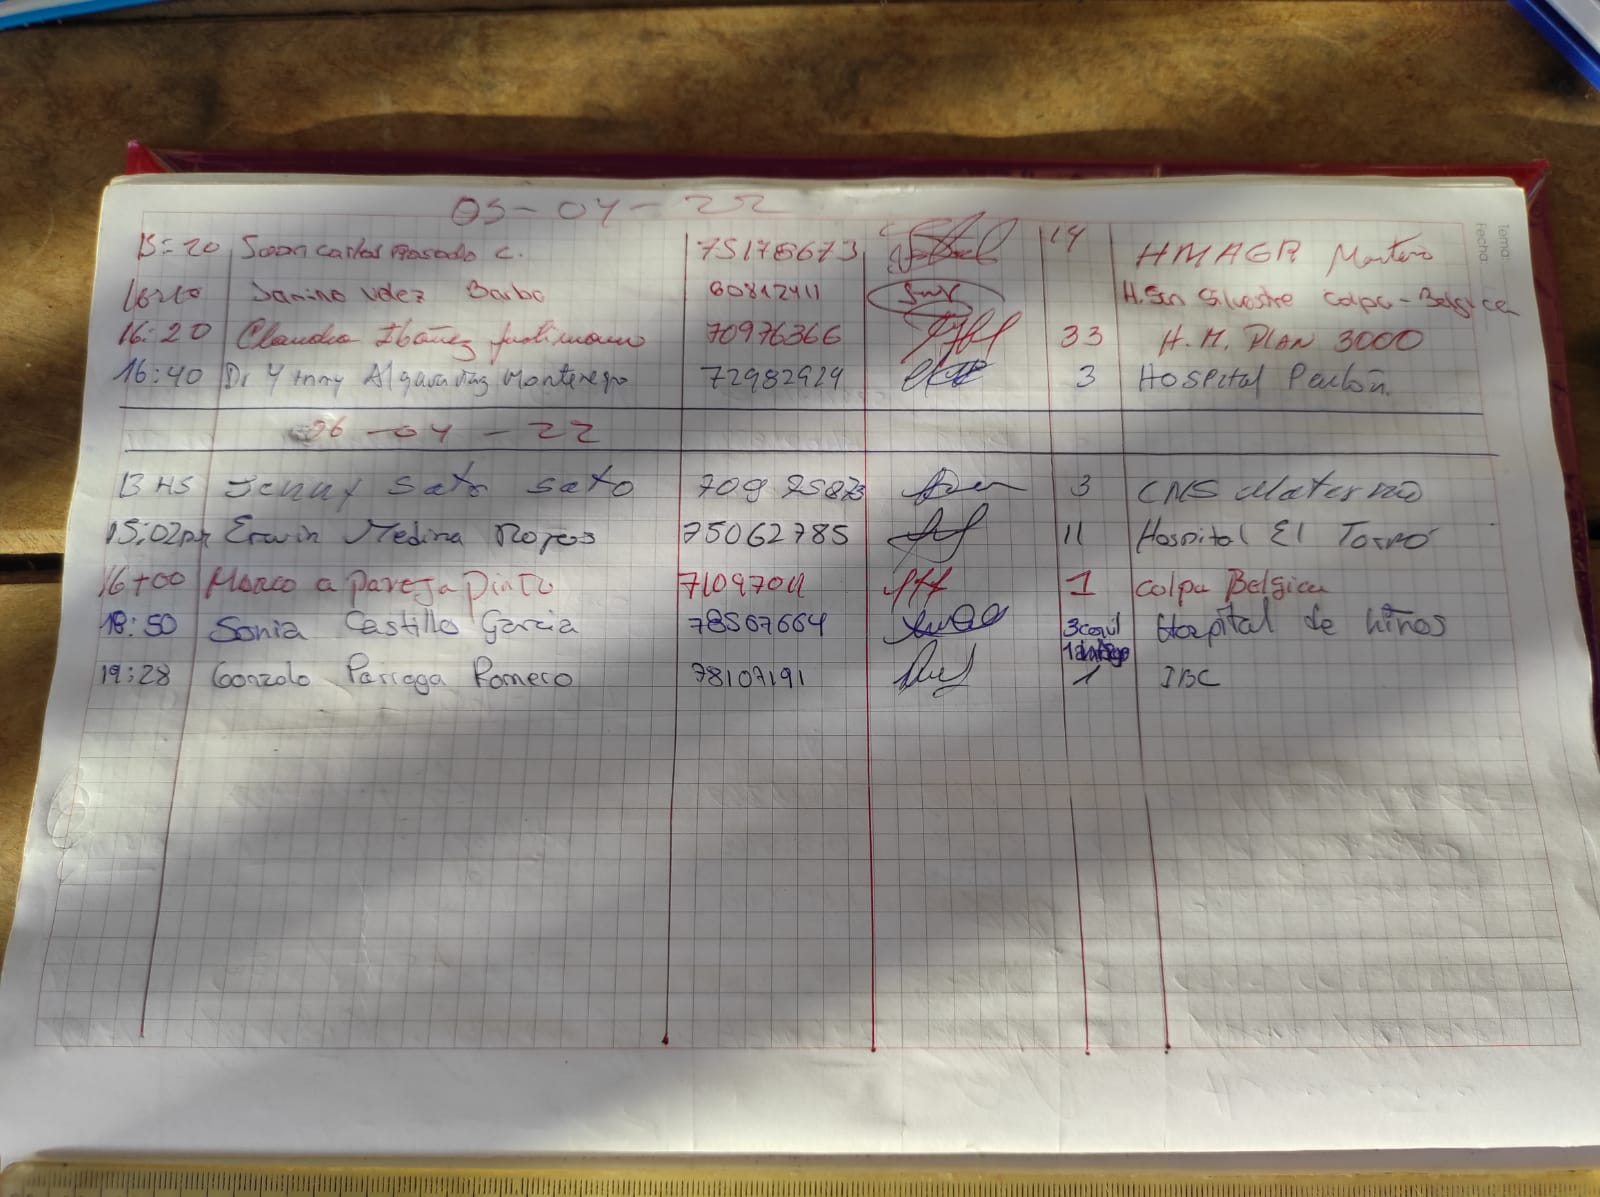 05-04-22
15:20 Juan Carlos Rosado C. 75178673 14 HMAGR Montero
16:10 Janina Velez Barba 60812411 H. San Silvestre Colpa-Belgica
16:20 Claudia Ibañez 70976366 33 H.M. PLAN 3000
16:40 Dr Montenegro 72982929 3 Hospital
06-04-22
13 HS Jenny Sato Sato 709 3 CNS
15:02pm Erwin Medina Rojas 75062785 11 Hospital El Torno
16+00 Marco a Pareja Pinto 1 Colpa Belgica
18:50 Sonia Castillo Garcia 78567664 3 Hospital de niños
1
19:28 Gonzalo Parraga Romero 78107191 1 IBC
Tema:
Fecha: